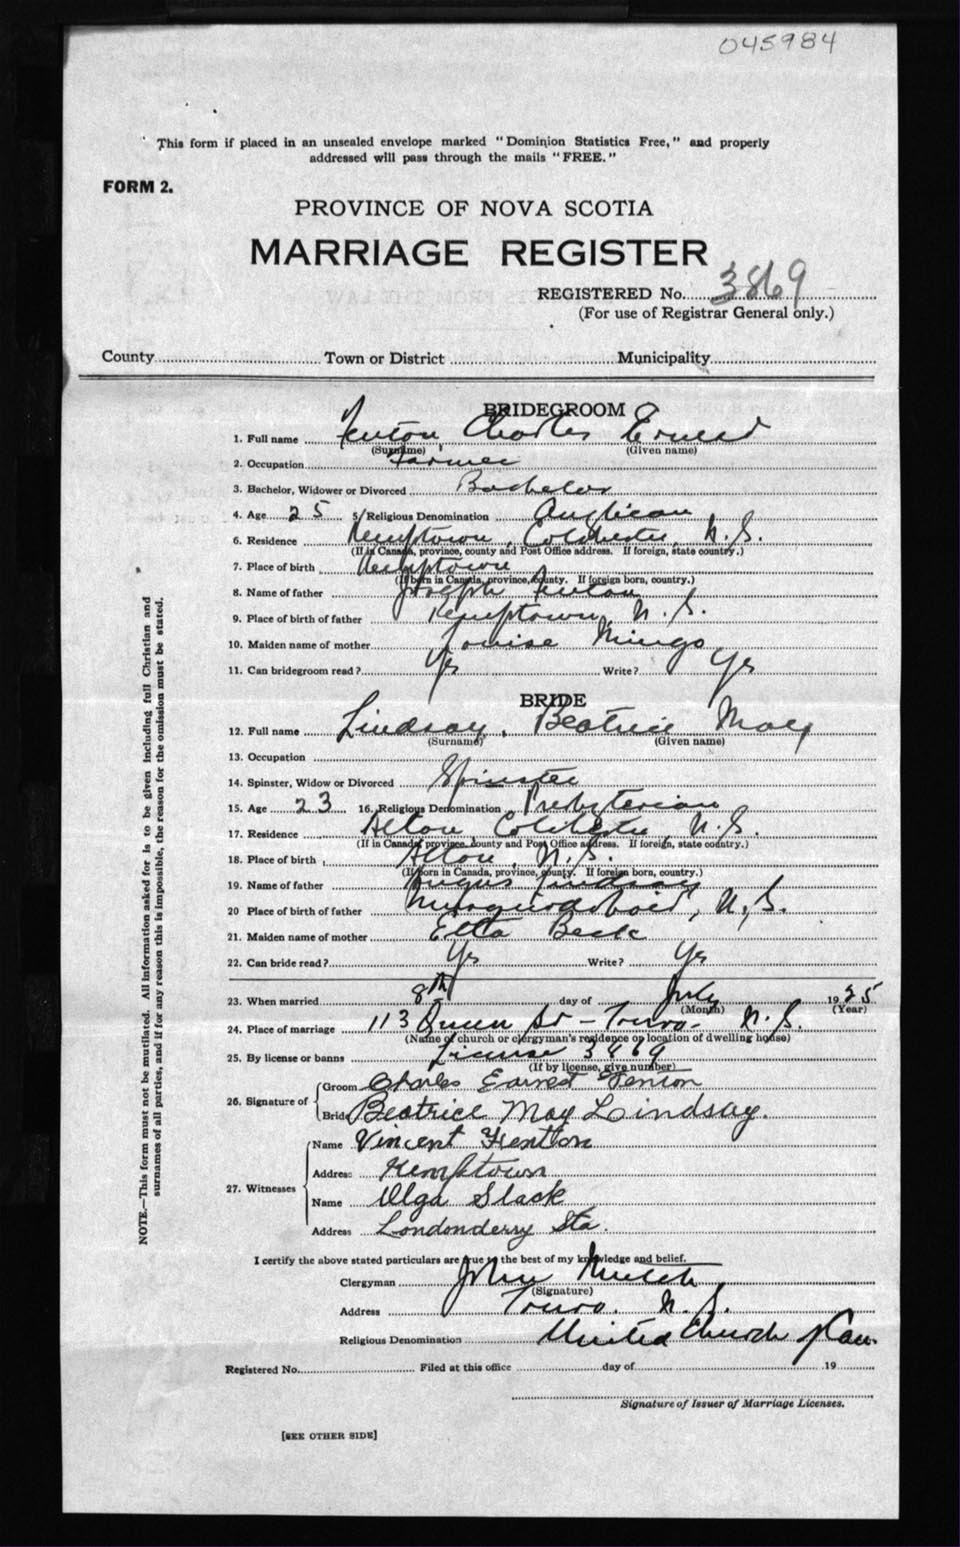 045984
This form if placed in an unsealed envelope marked "Dominion Statistics Free," and properly
addressed will pass through the mails "FREE."
FORM 2.
PROVINCE OF NOVA SCOTIA
MARRIAGE REGISTER
REGISTERED No. 3869
(For use of Registrar General only.)
County Town or District Municipality
BRIDEGROOM
1. Full name Fenton, Charles Ernest
(Surname) (Given name)
2. Occupation Farmer
3. Bachelor, Widower or Divorced Bachelor
4. Age 25 5/Religious Denomination Anglican
6. Residence Kemptown, Colchester, N.S.
(If in Canada, province, county and Post Office address. If foreign, state country.)
7. Place of birth Kemptown
(If born in Canada, province, county. If foreign born, country.)
8. Name of father Joseph Fenton
9. Place of birth of father Kemptown, N.S.
10. Maiden name of mother Louise Mingo
11. Can bridegroom read? Yes Write? Yes
BRIDE
12. Full name Lindsay, Beatrice May
(Surname) (Given name)
13. Occupation
14. Spinster, Widow or Divorced Spinster
15. Age 23 16. Religious Denomination Presbyterian
17. Residence Alton, Colchester, N.S.
(If in Canada, province, county and Post Office address. If foreign, state country.)
18. Place of birth Alton, N.S.
(If born in Canada, province, county. If foreign born, country.)
19. Name of father Angus Lindsay
20 Place of birth of father Musquodoboit, N.S.
21. Maiden name of mother Etta Beck
22. Can bride read? Yes Write? Yes
23. When married 8th day of July 1925
(Month) (Year)
24. Place of marriage 113 Queen St - Truro. N.S.
(Name of church or clergyman's residence or location of dwelling house)
25. By license or banns License 3869
(If by license, give number)
26. Signature of Groom Charles Earnest Fenton
Bride Beatrice May Lindsay.
27. Witnesses Name Vincent Fentton
Address Kemptown
Name Olga Slack
Address Londonderry Sta.
I certify the above stated particulars are true to the best of my knowledge and belief.
Clergyman John
(Signature)
Address Truro. N.S.
Religious Denomination United Church of Can.
Registered No. Filed at this office day of 19
Signature of Issuer of Marriage Licenses.
[SEE OTHER SIDE]
NOTE.—This form must not be mutilated. All information asked for is to be given including full Christian and
surnames of all parties, and if for any reason this is impossible, the reason for the omission must be stated.